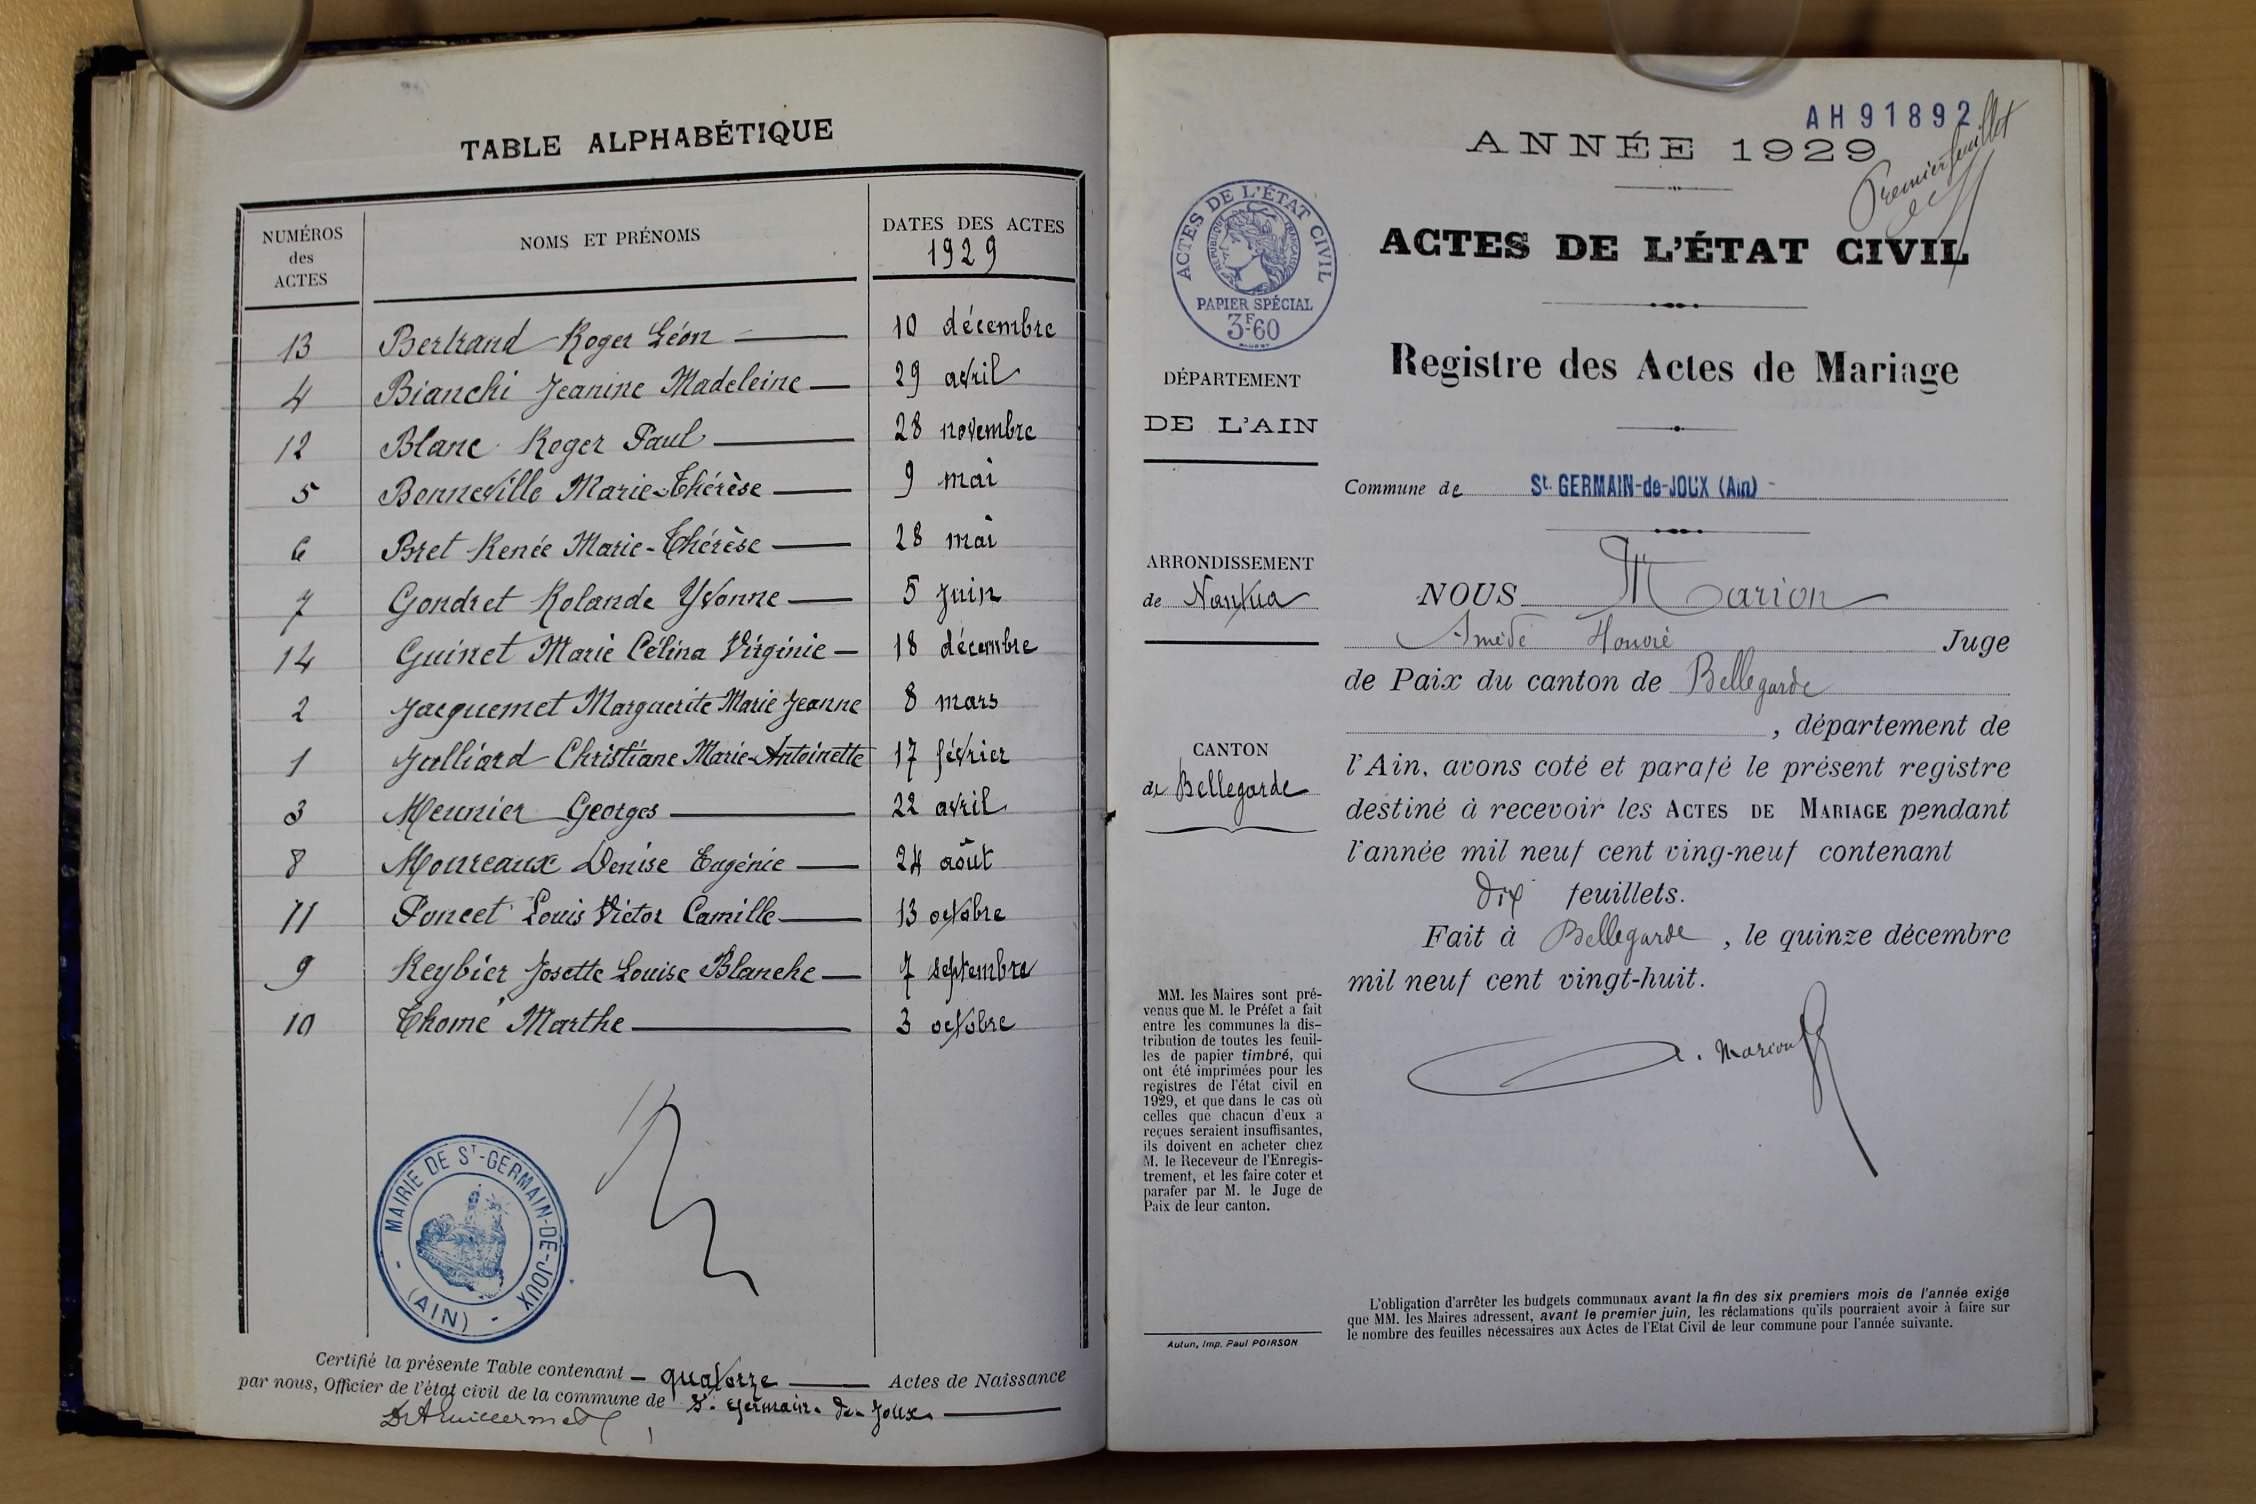 TABLE ALPHABÉTIQUE
NUMÉROS des ACTES
NOMS ET PRÉNOMS
DATES DES ACTES 1929
13 Bertrand Roger Léon 10 décembre
4 Bianchi Jeanine Madeleine 29 avril
12 Blanc Roger Paul 28 novembre
5 Bonneville Marie-Thérèse 9 mai
6 Bret Renée Marie-Thérèse 28 mai
7 Gondret Rolande Yvonne 5 Juin
14 Guinet Marie Célina Virginie 18 décembre
2 Jacquemet Marguerite Marie Jeanne 8 mars
1 Julliard Christiane Marie-Antoinette 17 février
3 Meunier Georges 22 avril
8 Moureaux Denise Eugénie 24 août
11 Poncet Louis Victor Camille 13 octobre
9 Reybier Josette Louise Blanche 7 septembre
10 Thomé Marthe 3 octobre
MAIRIE DE ST-GERMAIN-DE-JOUX (AIN)
Certifié la présente Table contenant quatorze Actes de Naissance
par nous, Officier de l'état civil de la commune de St. Germain-de-Joux
AH91892
Premier feuillet
ANNÉE 1929
ACTES DE L'ÉTAT CIVIL
ACTES DE L'ÉTAT CIVIL
RÉPUBLIQUE FRANÇAISE
PAPIER SPÉCIAL
3F60
Registre des Actes de Mariage
DÉPARTEMENT
DE L'AIN
Commune de St. GERMAIN-de-JOUX (Ain)
ARRONDISSEMENT
de Nantua
CANTON
de Bellegarde
NOUS Marion
Amédé Honoré Juge
de Paix du canton de Bellegarde
, département de
l'Ain, avons coté et parafé le présent registre
destiné à recevoir les ACTES DE MARIAGE pendant
l'année mil neuf cent ving-neuf contenant
dix feuillets.
Fait à Bellegarde, le quinze décembre
mil neuf cent vingt-huit.
A. Marion
MM. les Maires sont pré-
venus que M. le Préfet a fait
entre les communes la dis-
tribution de toutes les feuil-
les de papier timbré, qui
ont été imprimées pour les
registres de l'état civil en
1929, et que dans le cas où
celles que chacun d'eux a
reçues seraient insuffisantes,
ils doivent en acheter chez
M. le Receveur de l'Enregis-
trement, et les faire coter et
parafer par M. le Juge de
Paix de leur canton.
Autun, Imp. Paul POIRSON
L'obligation d'arrêter les budgets communaux avant la fin des six premiers mois de l'année exige
que MM. les Maires adressent, avant le premier juin, les réclamations qu'ils pourraient avoir à faire sur
le nombre des feuilles nécessaires aux Actes de l'Etat Civil de leur commune pour l'année suivante.